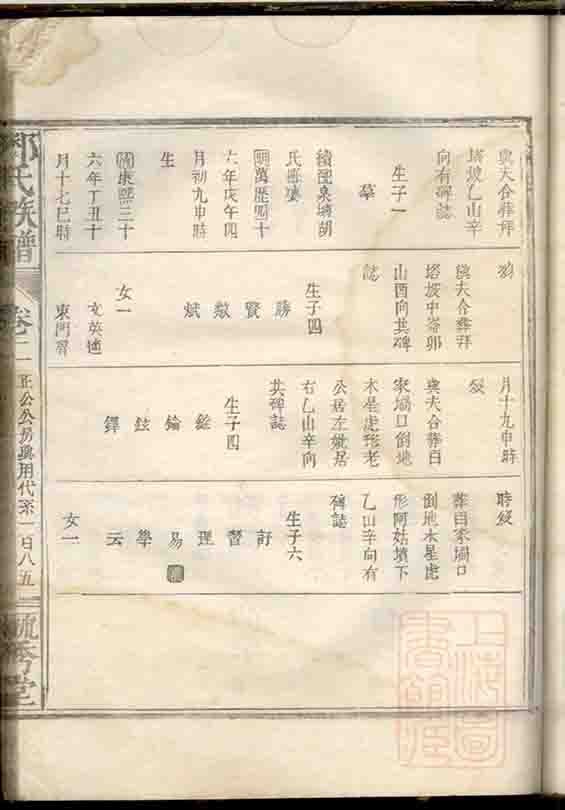 與夫合葬拜
塔坡乙山辛
向有碑誌
生子一
摹
續圓泉塘胡
氏熙婁
明萬歷四十
六年戊午四
月初九申時
生
清康熙三十
六年丁丑十
月十七巳時
歿
與夫合葬拜
塔坡中崙卯
山酉向共碑
誌
生子四
勝
賢
敷
斌
女一
文英適
東門習
月十九申時
歿
與夫合葬白
家塲口倒地
木星虎形老
公居左妣居
右乙山辛向
共碑誌
生子四
銓
錀
鉉
鐸
時歿
葬白家塲口
倒地木星虎
形阿姑墳下
乙山辛向有
碑誌
生子六
訂
謷
理
易
學
云
女一
氏族譜
卷二
正公公房與用代系
一百八五
毓秀堂
上海圖
書館藏